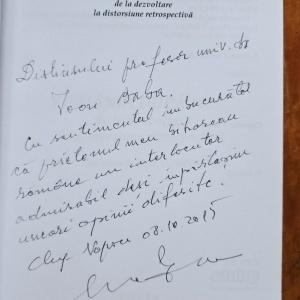 de la dezvoltare
la distorsiune retrospectivă
Distinsului profesor univ. dr
Ioan Bolba.
Cu sentimentul îmbucurător
că prietenul meu bihorean
rămâne un interlocutor
admirabil deși împărtășim
uneori opinii diferite!
Cluj Napoca 08.10.2015